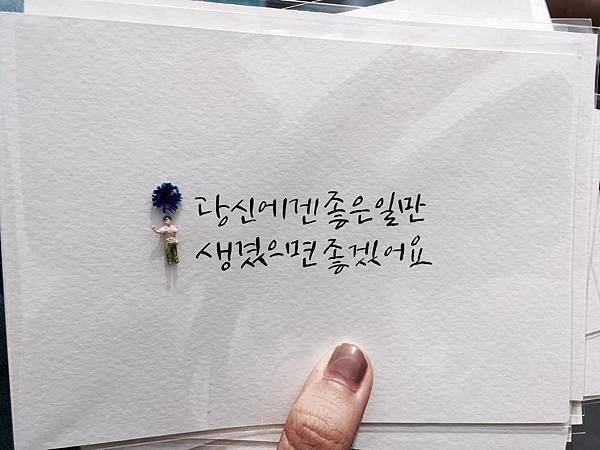 당신에겐 좋은 일만
생겼으면 좋겠어요